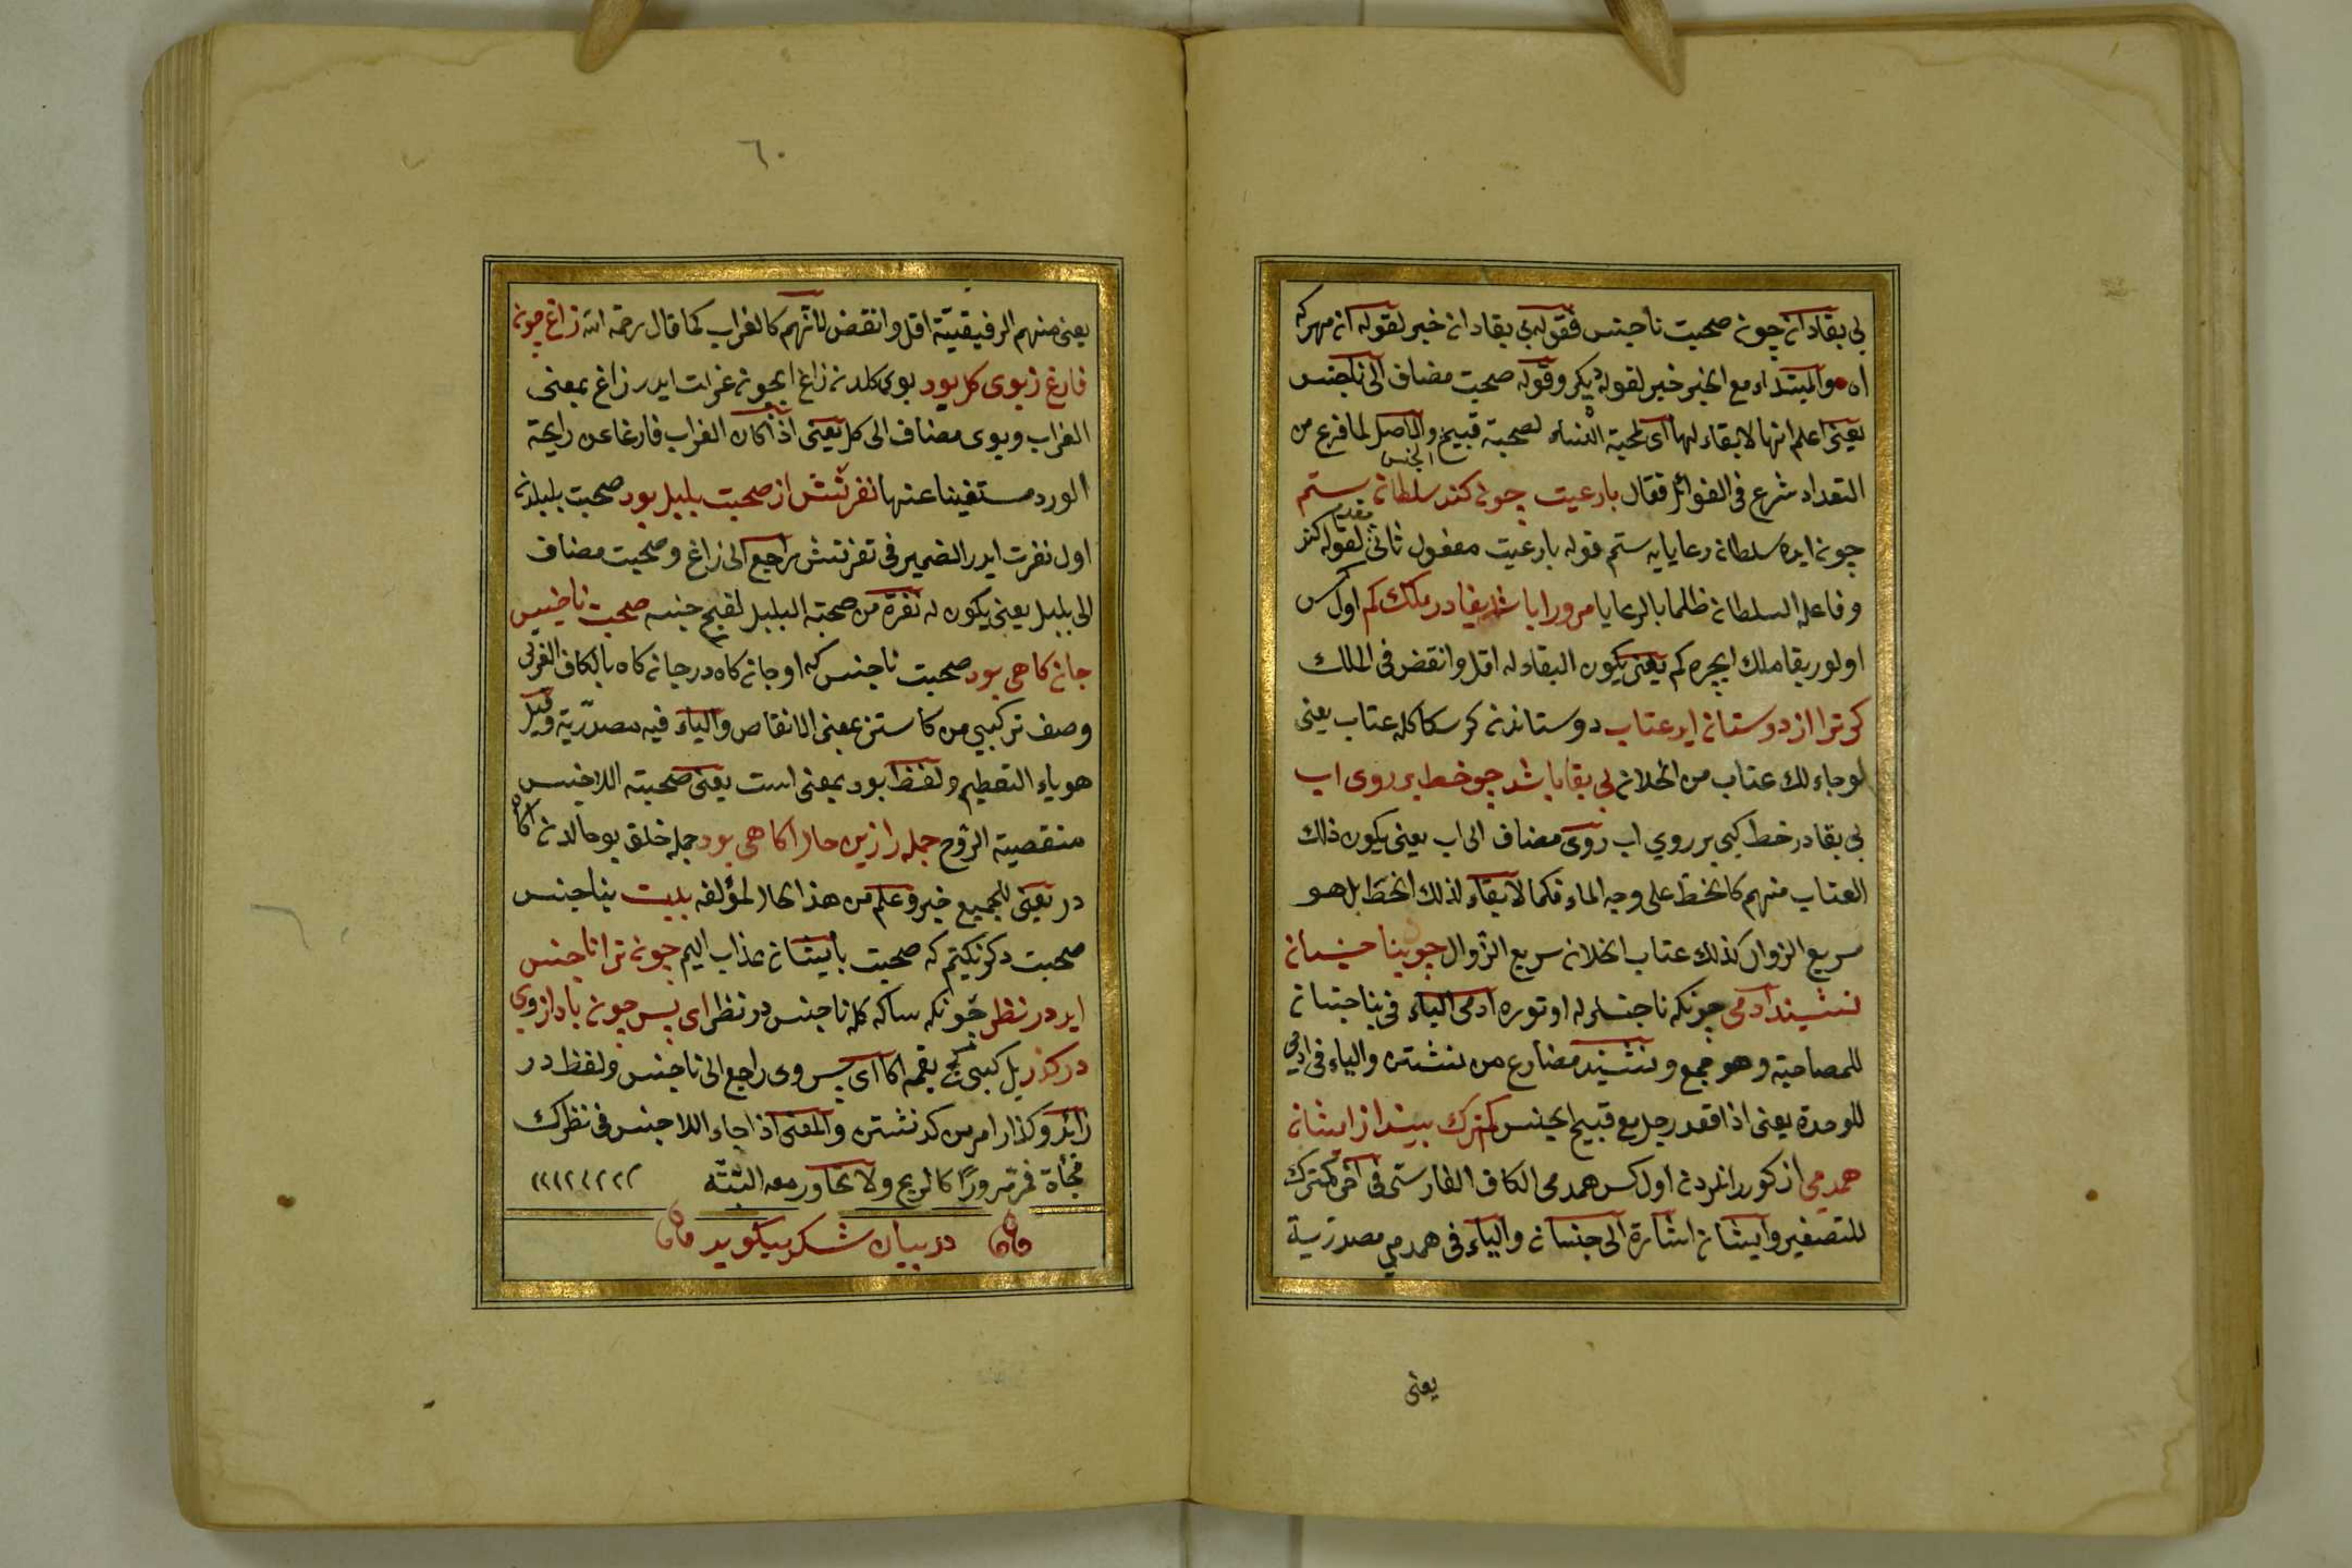 بی بقادان چون صحبت ناجنس فقوله بی بقادان خبر لقوله ان مهر که
اه والمبتداء مع الخبر خبر لقوله دیکر وقوله صحبت مضاف الی ناجنس
یعنی اعلم انها لا بقاء لها ای لمحبة النساء لصحبة قبیح والحاصل لما فرغ من
الجنس
التعداد شرع فی الفوائد فقال بارعیت چون کند سلطان ستم
مقدم
چون ایده سلطان رعایایه ستم قوله بارعیت مفعول ثانی لقوله کند
وفاعله السلطان ظلما بالرعایا مرورا باشد بقا در ملك کم اول کس
اولور بقا ملك ایچره کم یعنی یکون البقاء له اقل وانقض فی الملك
کر ترا از دوستان اید عتاب دوستاندن کر سکا کله عتاب یعنی
لو جاء لك عتاب من الخلان بی بقا باشد چو خط بر روی اب
بی بقادر خط کبی بر روی اب روی مضاف الی اب یعنی یکون ذلك
العتاب منهم کالخط علی وجه الماء فکما لا بقاء لذلك الخط بل هو
سریع الزوال کذلك عتاب الخلان سریع الزوال چو بنا جنسان
نشیند ادمی چونکه ناجنسلر له اوتوره ادمی الباء فی بناجنسان
للمصاحبة وهو جمع ونشیند مضارع من نشستن والیاء فی ادمی
للوحدة یعنی اذا قعد رجل مع قبیح الجنس کمترك بیند از ایشان
همدمی از کورر انلردن اول کس همدمی الکاف الفارسی فی اخر کمترك
للتصغیر وایشان اشارة الی جنسان والیاء فی همدمی مصدریة
یعنی
٦٠
یعنی منهم الرفیقیة اقل وانقض لانهم کالغراب کما قال رحمه الله زاغ چون
فارغ زبوی کل بود بوی کلدن زاغ ایچون غزات ایدر زاغ بمعنی
الغراب وبوی مضاف الی کل یعنی اذا کان الغراب فارغا عن رایحة
الورد مستغینا عنها نفرتش از صحبت بلبل بود صحبت بلبلدن
اول نفرت ایدر الضمیر فی نفرتش راجع الی زاغ وصحبت مضاف
الی بلبل یعنی یکون له نفرة من صحبة البلبل لقبح جنسه صحبت ناجنس
جان کاهی بود صحبت ناجنس که او جان کاه در جان کاه بالکاف العربی
وصف ترکیبی من کاستن بمعنی الانقاص والیاء فیه مصدریة وقیل
هو یاء التعظیم ولفظ بود بمعنی است یعنی صحبة اللاجنس
منقصیة الروح جمله را زین حال اکاهی بود جمله خلق بو حالدن اکاه
در یعنی للجمیع خبر وعلم من هذا الحال لمؤلفه بیت بناجنس
صحبت دکر نکیتم که صحبت بایشان عذاب الیم چون ترا ناجنس
اید در نظر چونکه ساکه کله ناجنس در نظر ای پس چون باد از وی
در کذر یل کبی کچ یقمه اکا ای پس وی راجع الی ناجنس ولفظ در
زائد وکذار امر من کذشتن والمعنی اذا جاء اللاجنس فی نظرك
فجأة فمر مرورًا کالریح ولا تحاور معه البتة
در بیان شکر میکوید